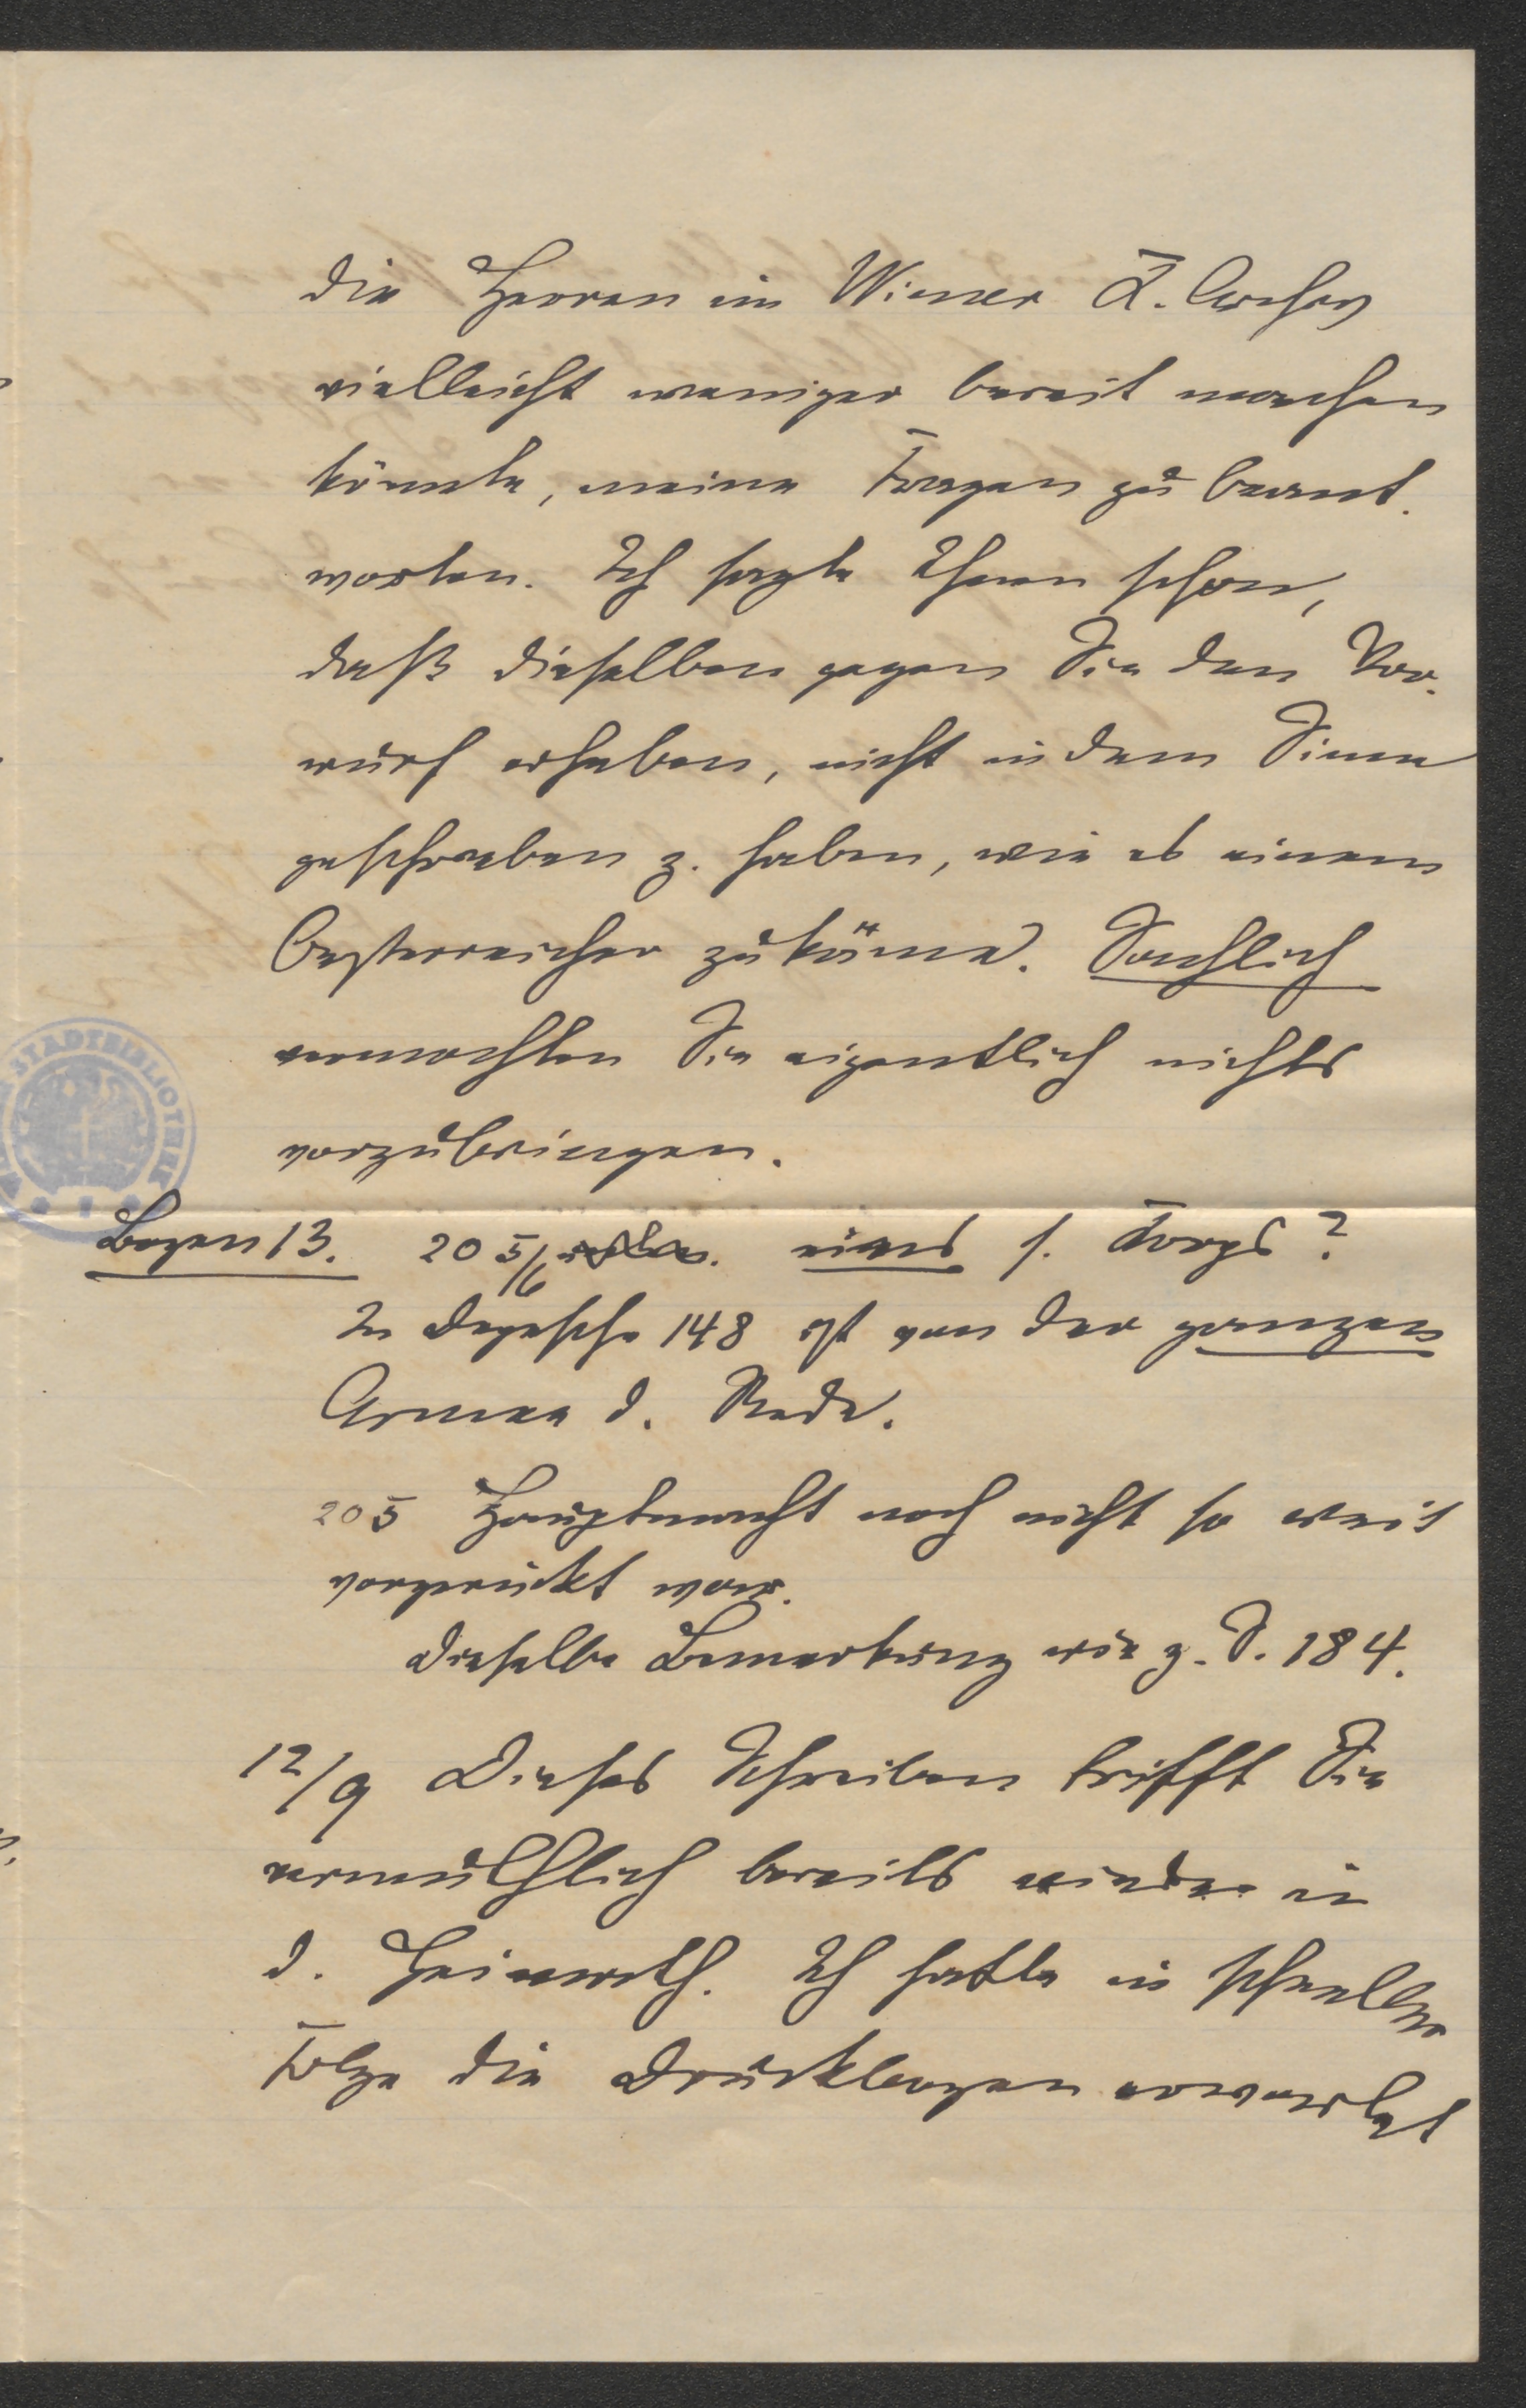 die Herren im Wiener K. Archiv
vielleicht weniger bereit machen
könnte, meine Fragen zu beant-
worten. Ich sagte Ihnen schon,
daß dieselben gegen Sie den Vor-
wurf erheben, nicht in dem Sinne
geschrieben z. haben, wie es einem
Oesterreicher zukäme. Sachlich
vermochten Sie eigentlich nichts
vorzubringen.
STADTBIBLIOTHEK
Bogen 13. 205/6 eines s. Korps?
In Depesche 148 ist von der ganzen
Armee d. Rede.
205 Hauptmacht noch nicht so weit
vorgerückt war.
dieselbe Bemerkung wie z. S. 184.
12/9 Dieses Schreiben trifft Sie
vermuthlich bereits wieder in
d. Heimath. Ich hatte in schneller
Folge die Druckbogen erwartet